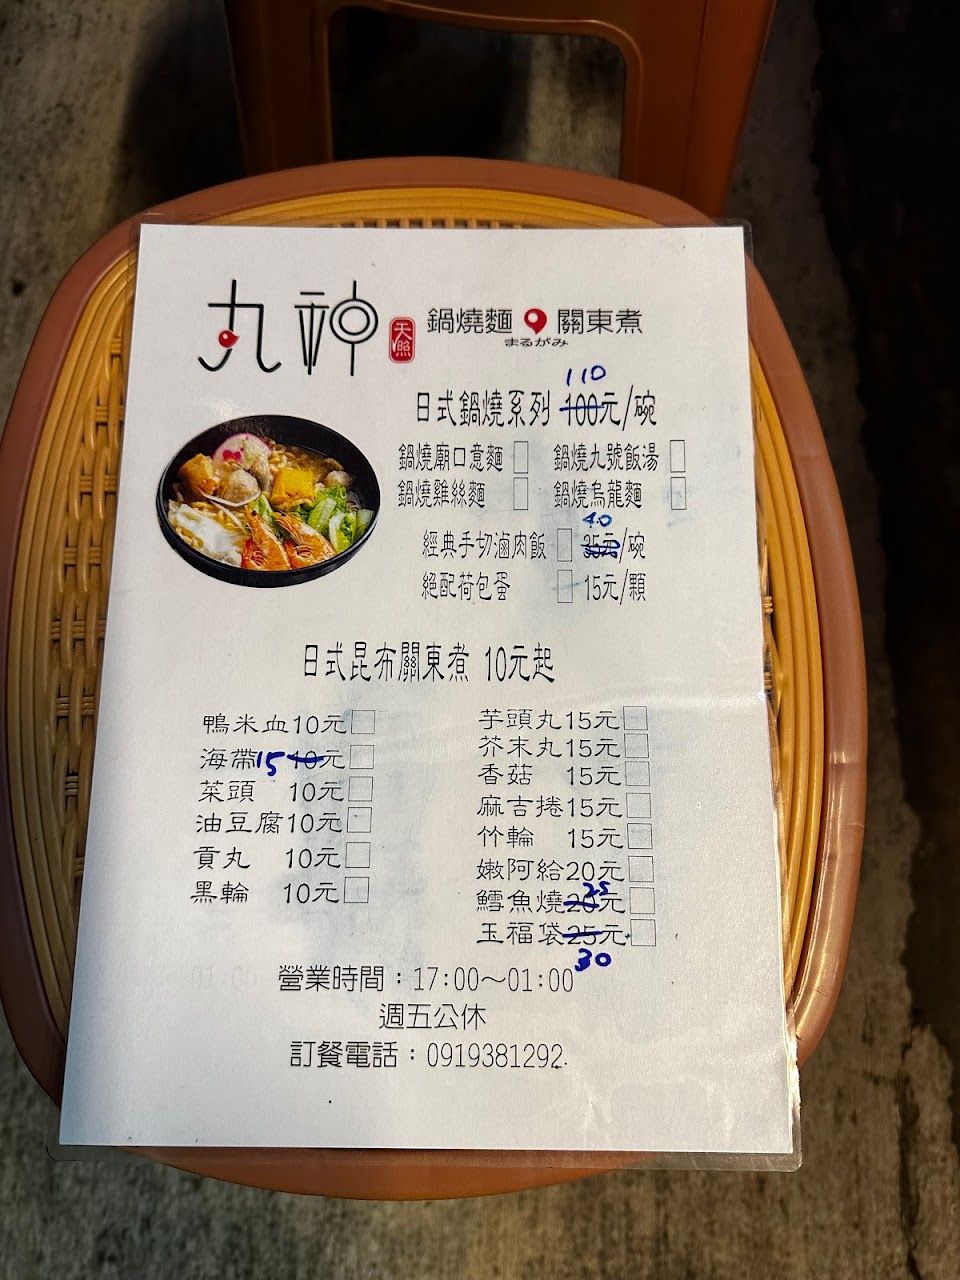 丸神 天照 鍋燒麵 關東煮
まるがみ
110
日式鍋燒系列 100元/碗
鍋燒廟口意麵 鍋燒九號飯湯
鍋燒雞絲麵 鍋燒烏龍麵
40
經典手切滷肉飯 35元/碗
絕配荷包蛋 15元/顆
日式昆布關東煮 10元起
鴨米血10元
海帶15 10元
菜頭 10元
油豆腐10元
貢丸 10元
黑輪 10元
芋頭丸15元
芥末丸15元
香菇 15元
麻吉捲15元
竹輪 15元
嫩阿給20元
25
鱈魚燒20元
玉福袋25元
30
營業時間：17:00～01:00
週五公休
訂餐電話：0919381292